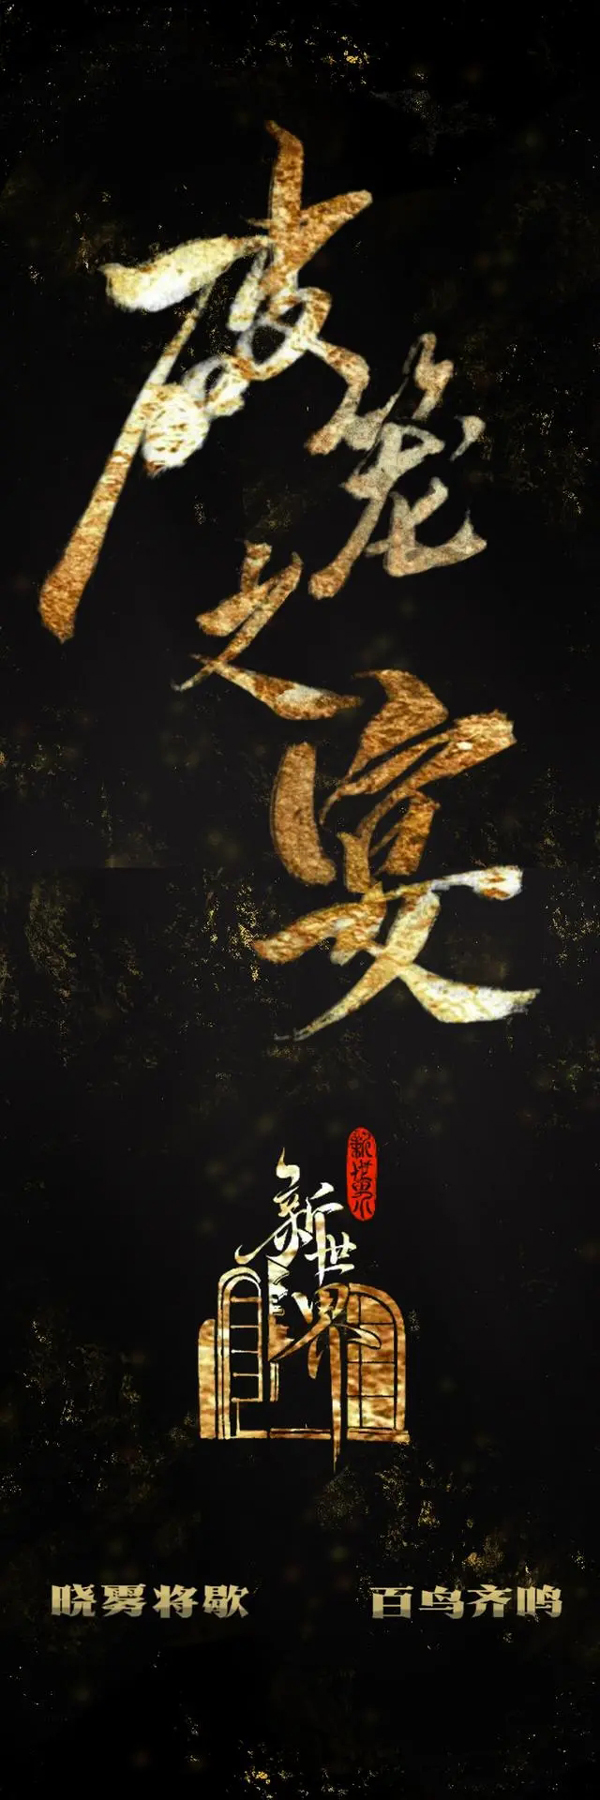 破笼之宴
新世界
新世界
晓雾将歇 百鸟齐鸣